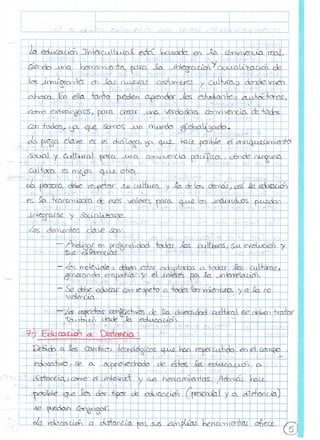 La educación Intercultural está basada en la convivencia real,
siendo una herramienta para la integración y socialización de
los inmigrantes en las nuevas costumbres y culturas donde viven
ahora. En ella tanto pueden aprender los estudiantes autóctonos,
como extranjeros, para crear una verdadera convivencia de todos
con todos, ya que somos un mundo globalizado.
La pieza clave es el dialogo, ya que hace posible el enriquecimiento
social y cultural para una convivencia pacífica, donde ninguna
cultura es mejor que otra.
La persona debe respetar su cultura y la de los demás, así la educación
es la transmisora de esos valores para que los individuos puedan
integrarse y socializarse.
Los elementos clave son:
- Analizar en profundidad todas las culturas, su evolución y
sus diferencias.
- Los materiales deben estar adaptados a todas las culturas,
generando empatía y el interés por la información.
- Se debe educar con respeto a todos los miembros y a la no
violencia.
- Los aspectos conflictivos de la diversidad cultural se deben tratar
también desde la educación.
7:) Educación a Distancia:
Debido a los cambios tecnológicos que han repercutido en el campo
educativo, se a aprovechado de estos la educación a
distancia, como el internet y sus herramientas. Además hace
posible que los dos tipos de educación (presencial y a distancia)
se puedan conjugar.
La educación a distancia por sus amplias herramientas ofrece
5